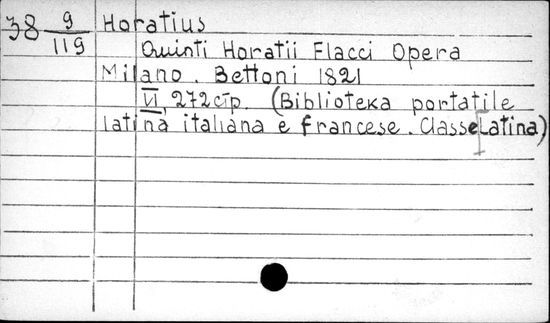 38 9/119 Horatius
Quinti Horatii Flacci Opera
Milano. Bettoni 1821
VI, 272 стр. (Biblioteka portatile
latina italiana e francese. Classe Latina)